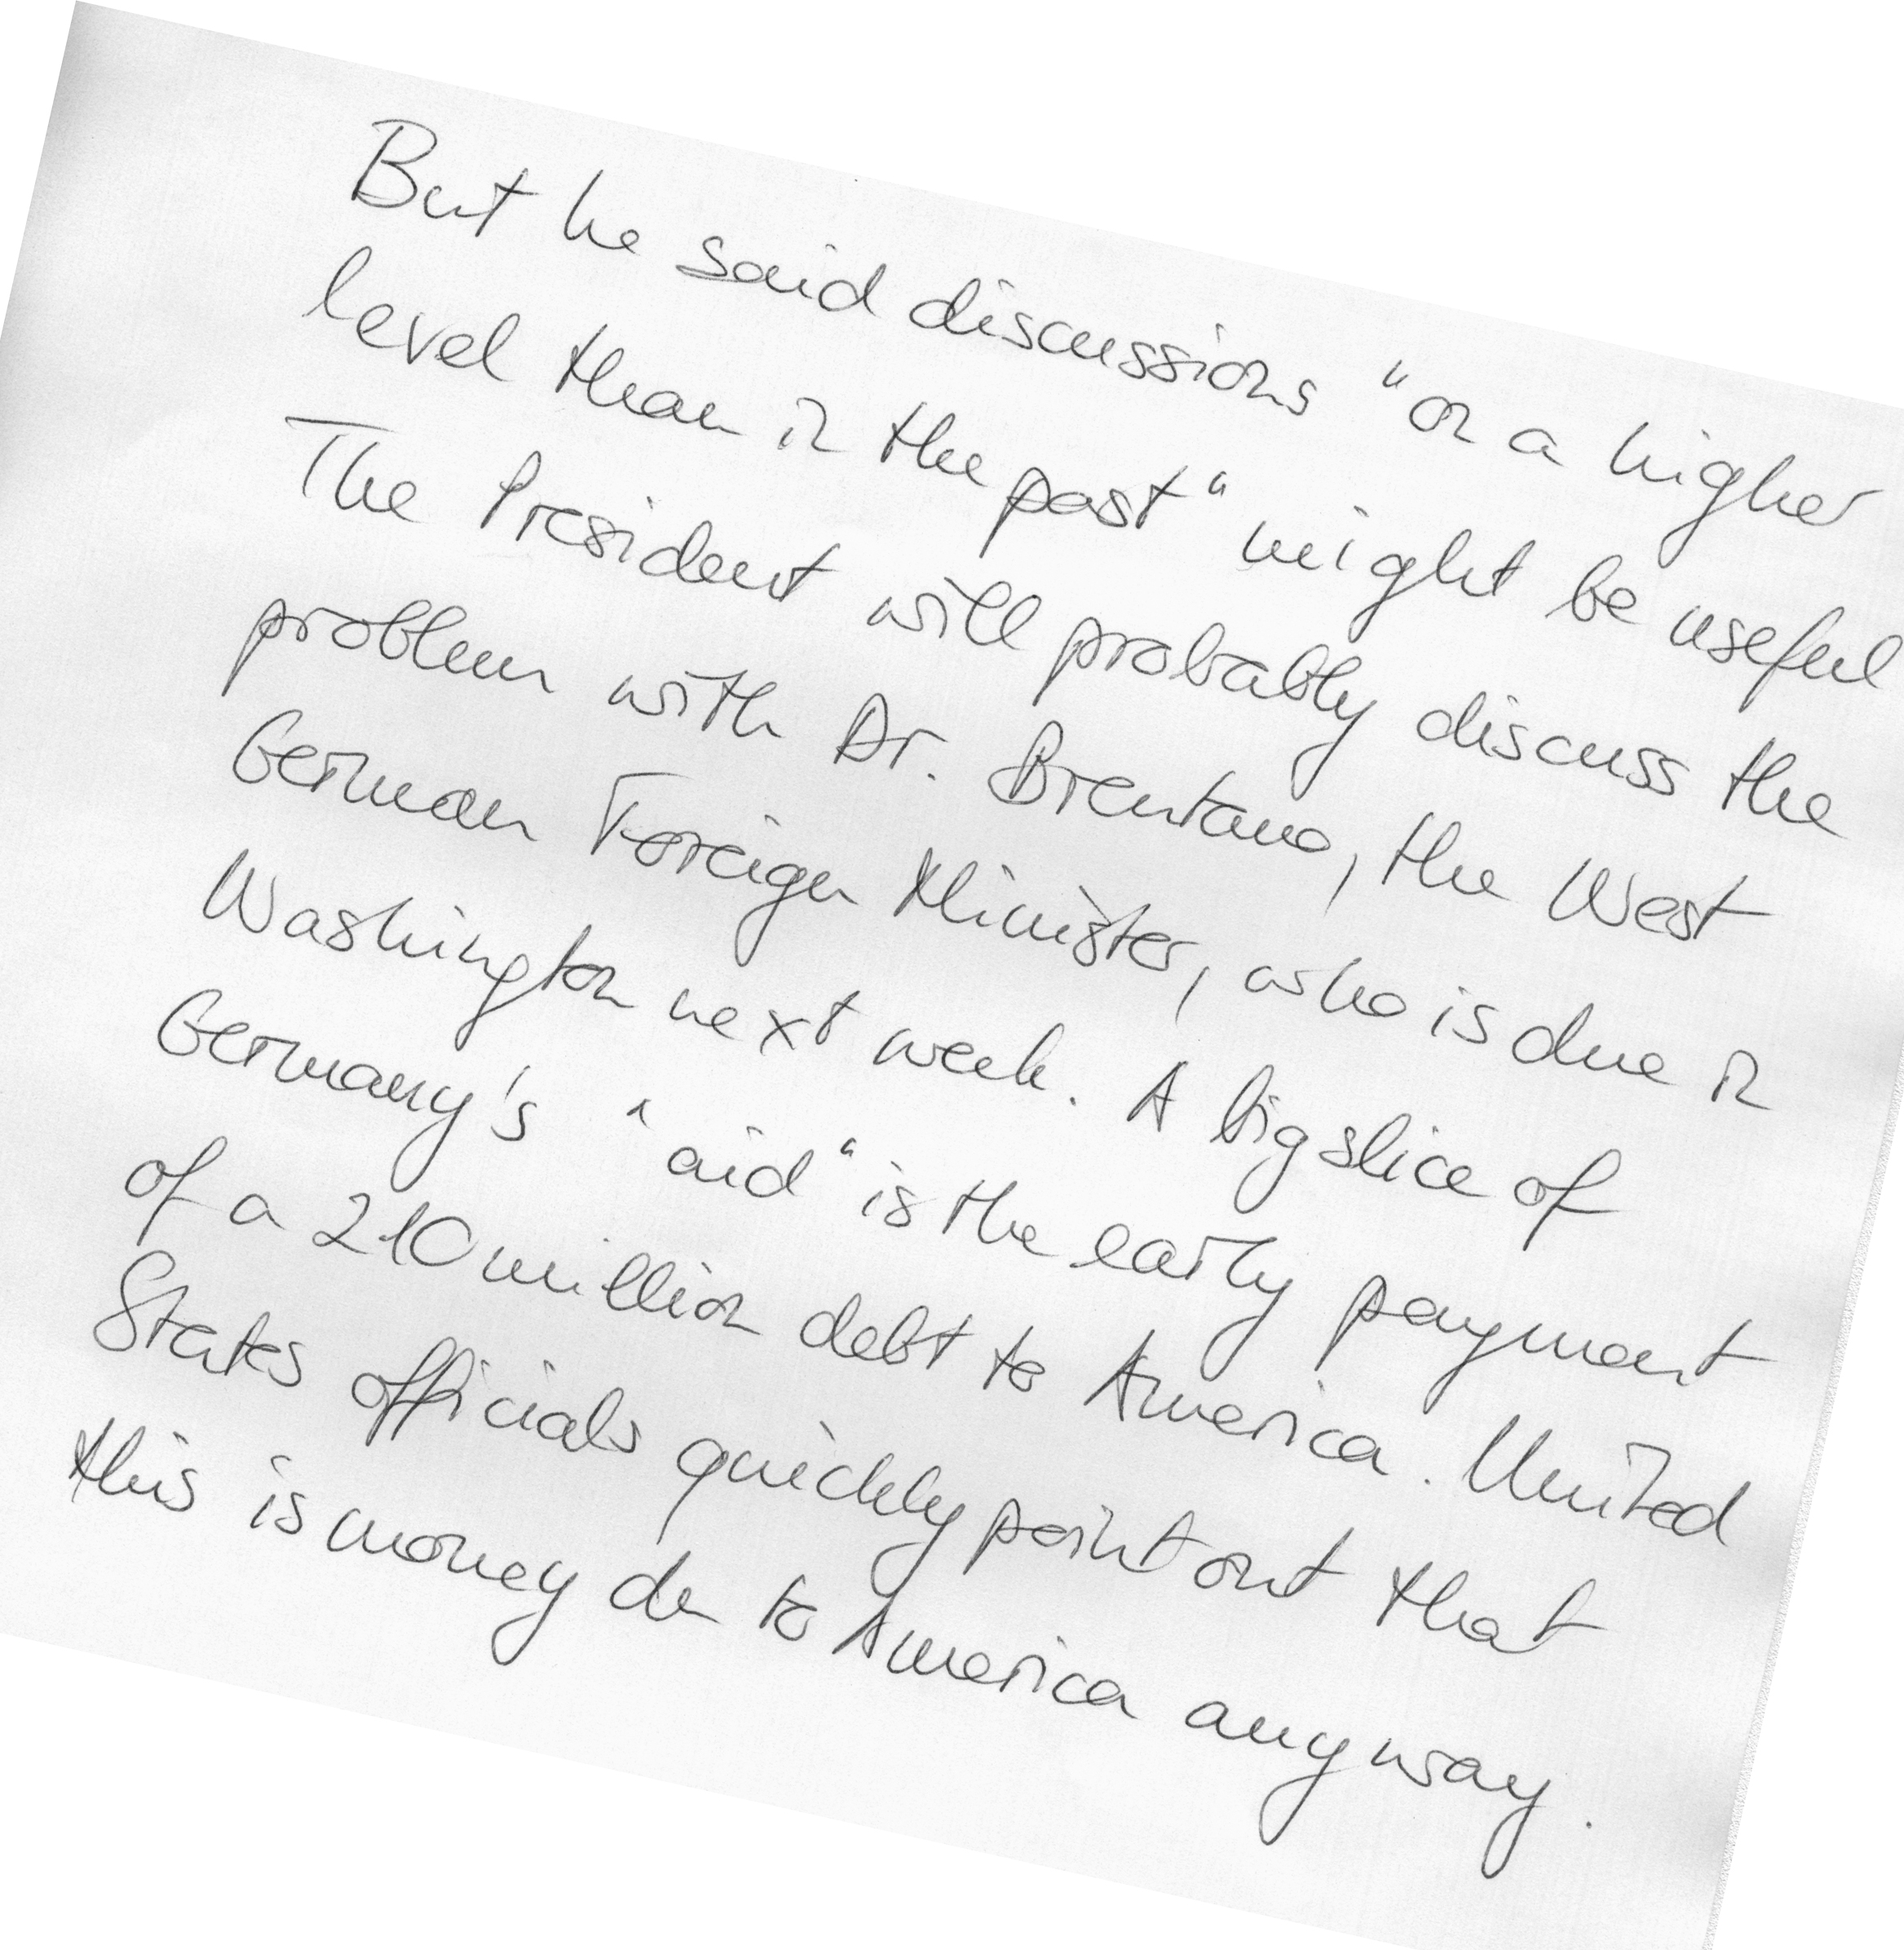 But he said discussions "on a higher
level than in the past" might be useful
The President will probably discuss the
problem with Dr. Brentano, the West
German Foreign Minister, who is due in
Washington next week. A big slice of
Germany's "aid" is the early payment
of a 210 million debt to America. United
States officials quickly point out that
this is money du to America anyway.